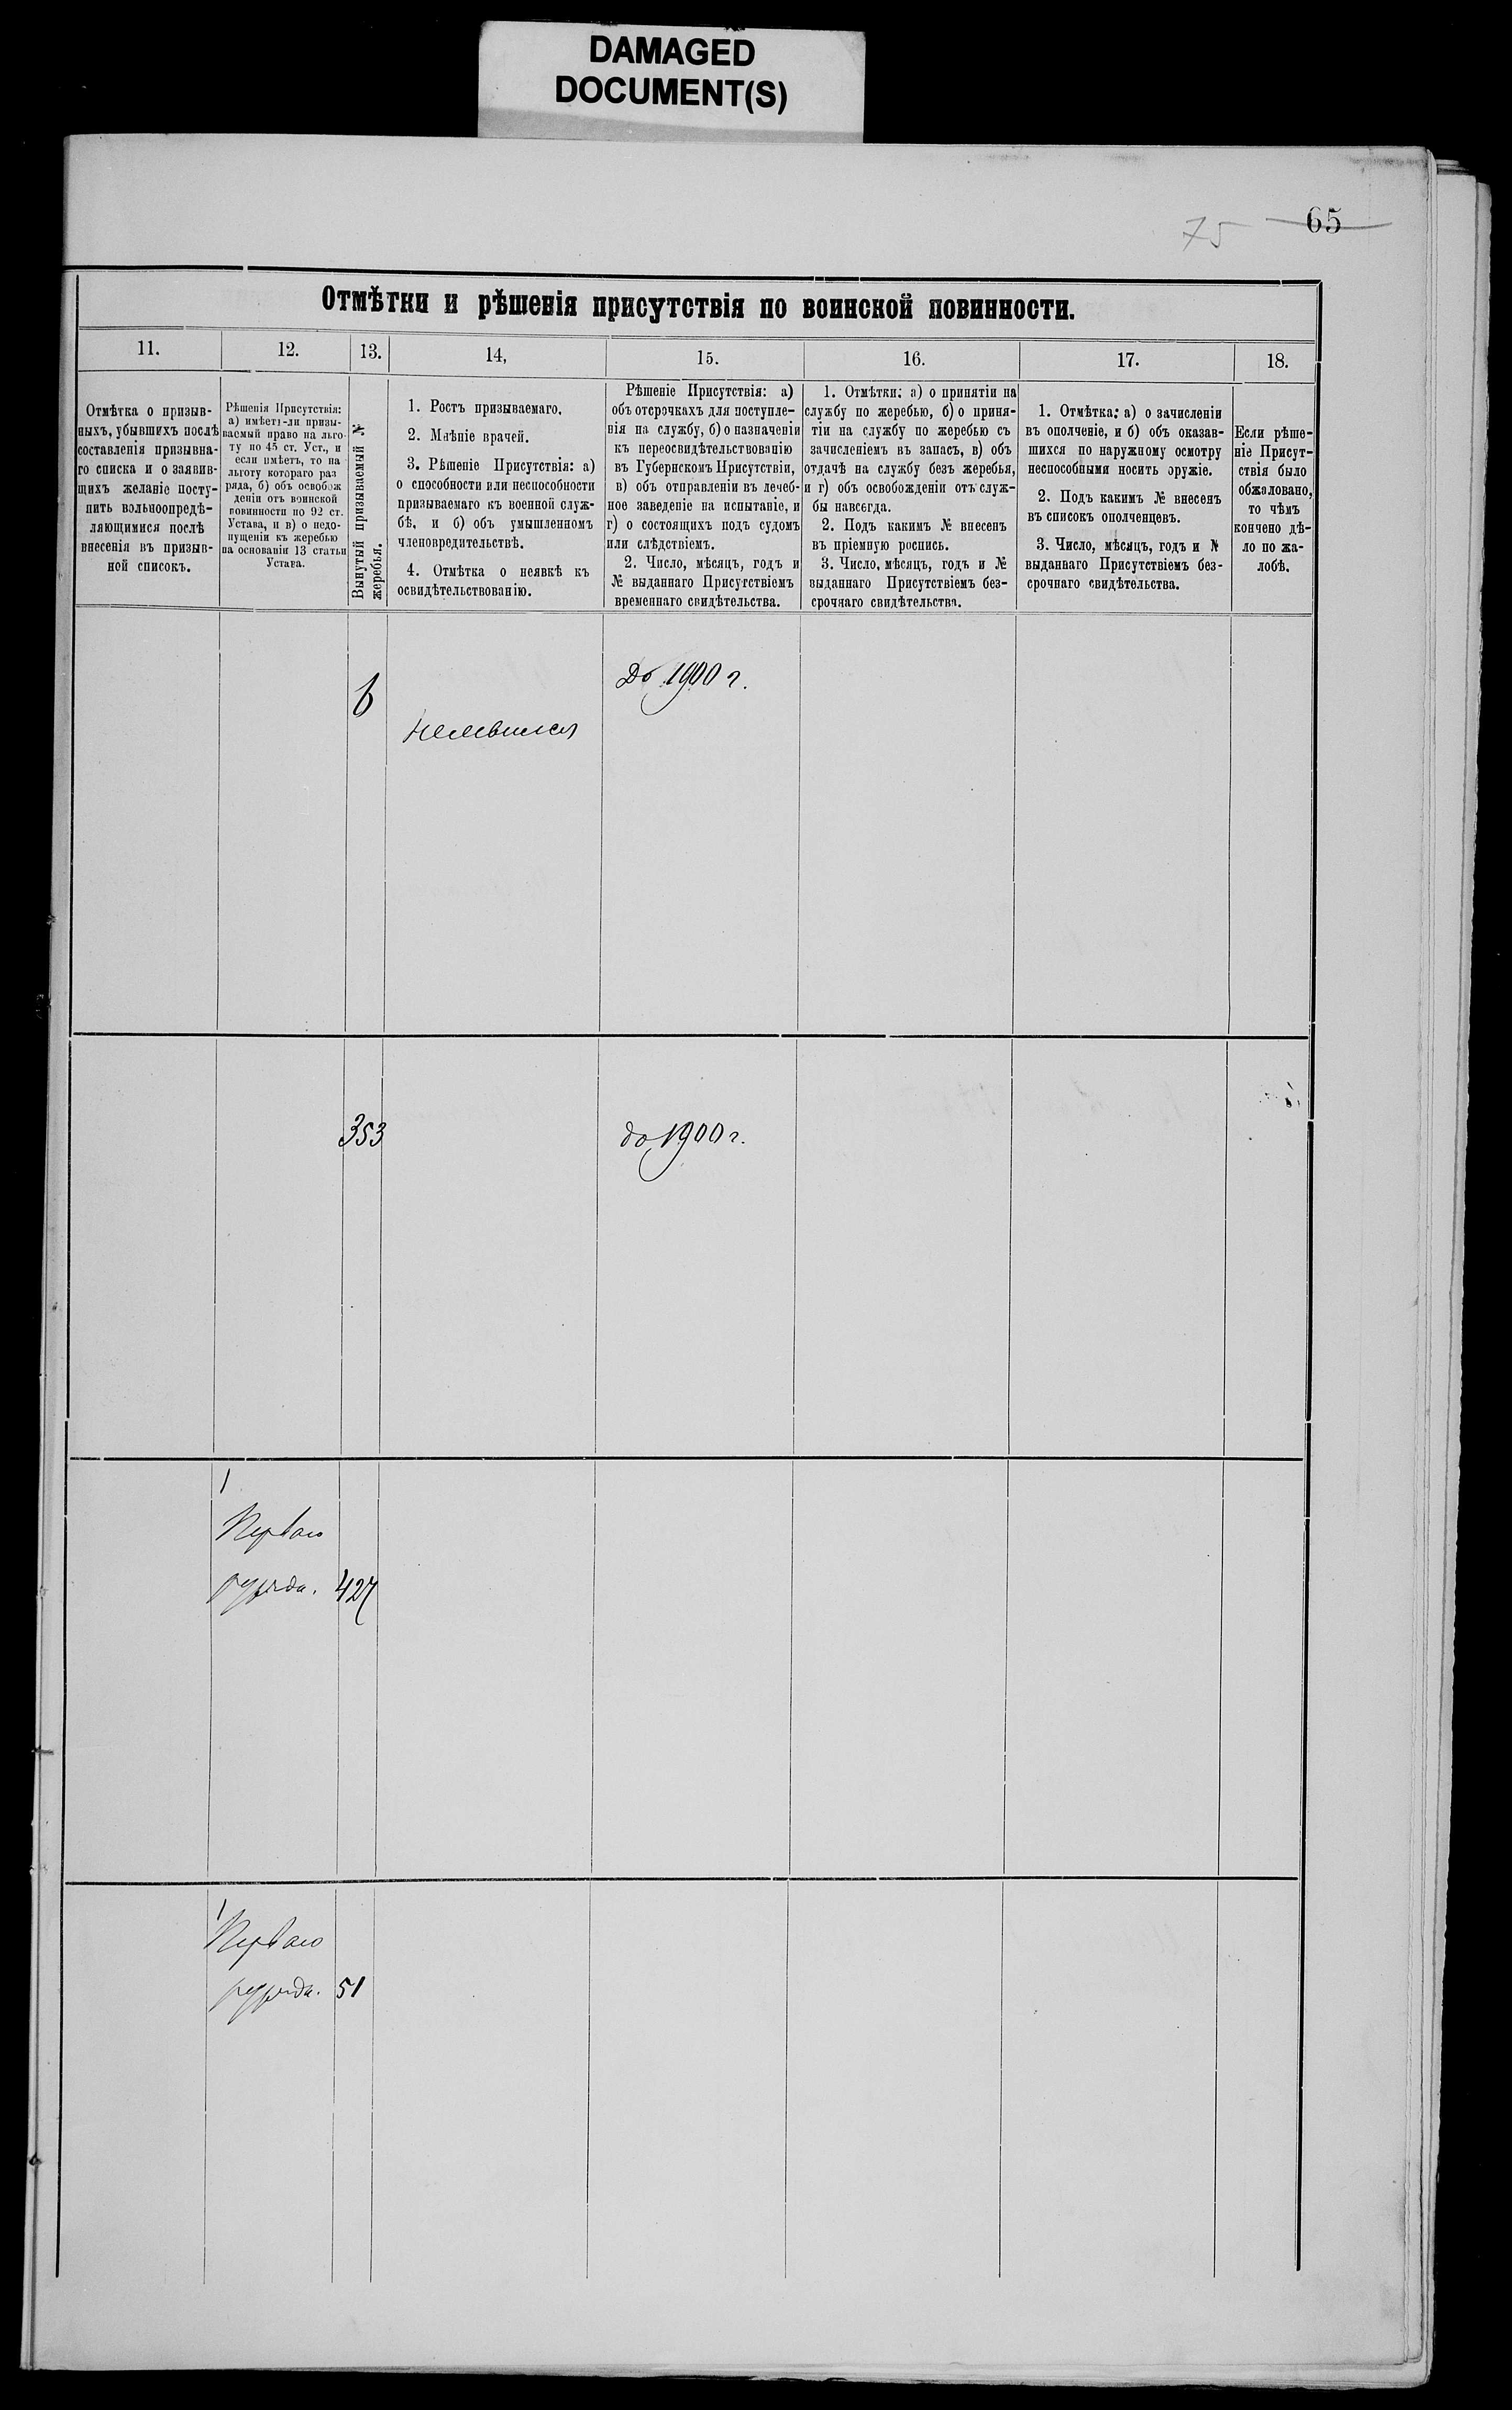 DAMAGED
DOCUMENT(S)
75 65
Отмѣтки и рѣшенія присутствія по воинской повинности.
11.
12.
13.
14,
15.
16.
17.
18.
Отмѣтка о призыв-
ныхъ, убывшихъ послѣ
составленія призывна-
го списка и о заявив-
щихъ желаніе посту-
пить вольноопредѣ-
ляющимися послѣ
внесенія въ призыв-
ной списокъ.
Рѣшенія Присутствія:
а) имѣетъ-ли призы-
ваемый право на льго-
ту по 45 ст. Уст., и
если имѣетъ, то на
льготу котораго раз
ряда, б) объ освобож
деніи отъ воинской
повинности по 92 ст.
Устава, и в) о недо-
пущеніи къ жеребью
на основаніи 13 статьи
Устава.
Вынутый призываемый №
жеребья.
1. Ростъ призываемаго.
2. Мнѣніе врачей.
3. Рѣшеніе Присутствія: а)
о способности или неспособности
призываемаго къ военной служ-
бѣ, и б) объ умышленномъ
членовредительствѣ.
4. Отмѣтка о неявкѣ къ
освидѣтельствованію.
Рѣшеніе Присутствія: а)
объ отсрочкахъ для поступле-
нія на службу, б) о назначеніи
къ переосвидѣтельствованію
въ Губернскомъ Присутствіи,
в) объ отправленіи въ лечеб-
ное заведеніе на испытаніе, и
г) о состоящихъ подъ судомъ
или слѣдствіемъ.
2. Число, мѣсяцъ, годъ и
№ выданнаго Присутствіемъ
временнаго свидѣтельства.
1. Отмѣтки: а) о принятіи на
службу по жеребью, б) о приня-
тіи на службу по жеребью съ
зачисленіемъ въ запасъ, в) объ
отдачѣ на службу безъ жеребья,
и г) объ освобожденіи отъ служ-
бы навсегда.
2. Подъ какимъ № внесенъ
въ пріемную роспись.
3. Число, мѣсяцъ, годъ и №
выданнаго Присутствіемъ без-
срочнаго свидѣтельства.
1. Отмѣтка: а) о зачисленіи
въ ополченіе, и б) объ оказав-
шихся по наружному осмотру
неспособными носить оружіе.
2. Подъ какимъ № внесенъ
въ списокъ ополченцевъ.
3. Число, мѣсяцъ, годъ и №
выданнаго Присутствіемъ без-
срочнаго свидѣтельства.
Если рѣше-
ніе Присут-
ствія было
обжаловано,
то чѣмъ
кончено дѣ-
ло по жа-
лобѣ.
6
До 1900 г.
неявился
353
до 1900 г.
1
Перваго
разряда. 427
1
Перваго
разряда. 51